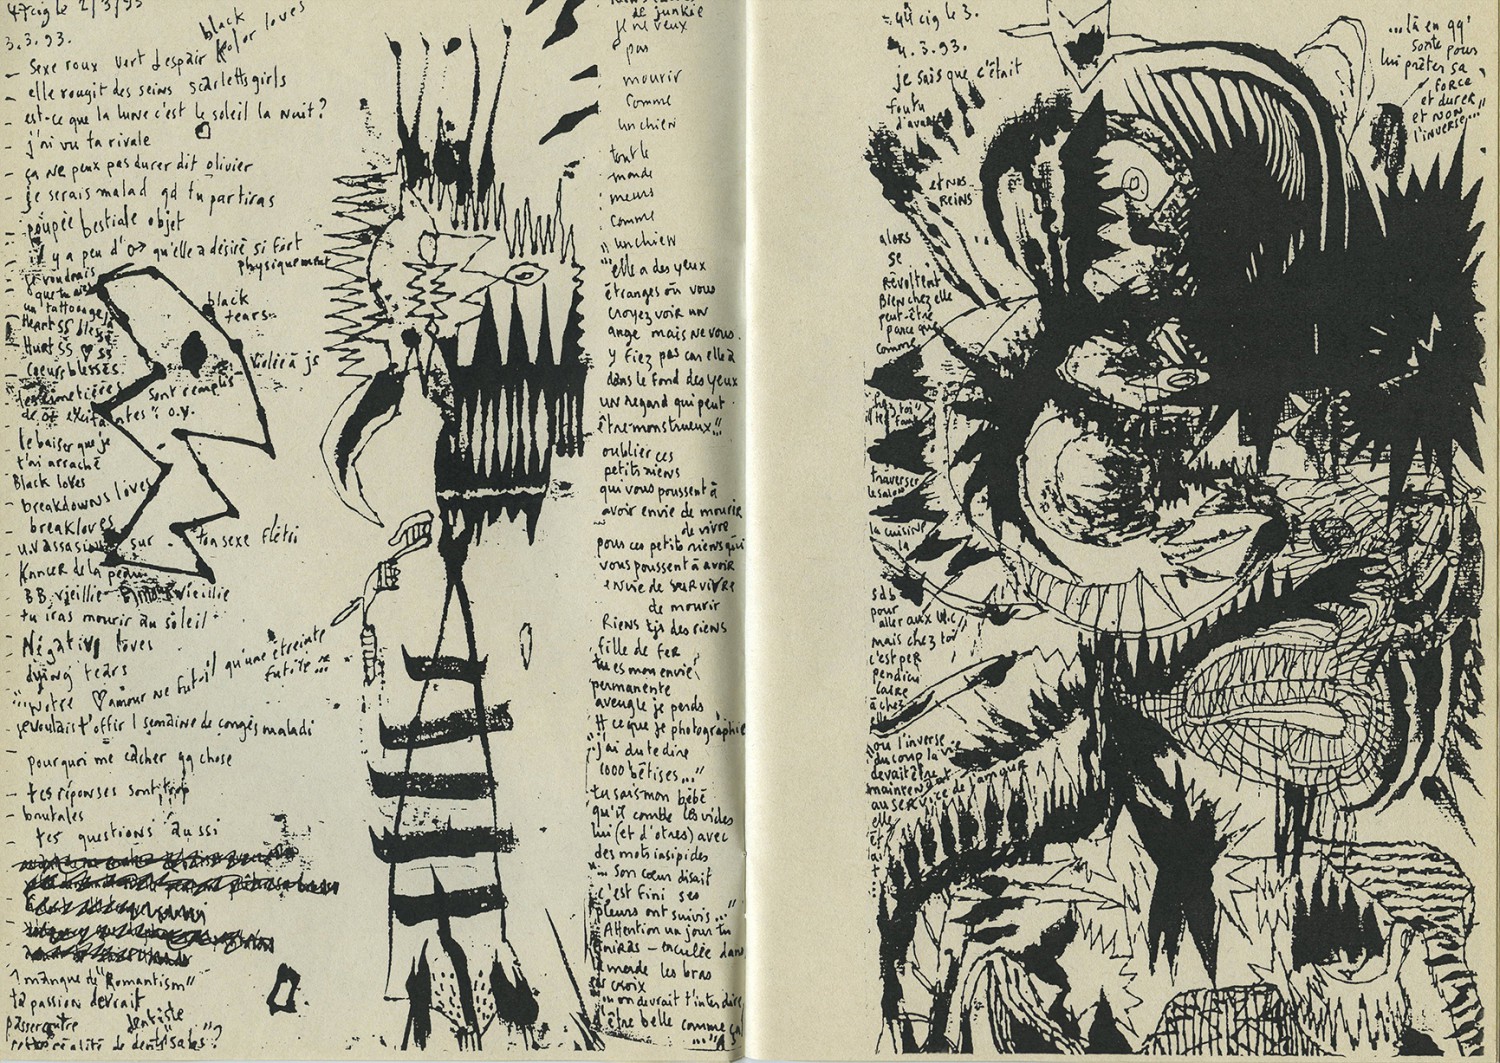 47 cig le 2/3/93
3.3.93.
black
kolor loves
_ sexe roux vert despair
_ elle rougit des seins scarletts girls
_ est-ce que la lune c'est le soleil la nuit?
_ j'ai vu ta rivale
_ ça ne peux pas durer dit olivier
_ je serais malad qd tu partiras
_ poupée bestiale objet
il y a peu d' qu'elle a désiré si fort
physiquement
je voudrais
que tu aies
un tattouage
Heart SS blessé
Hurt SS ♡ SS
Coeurs blessés.
les cimetières sont remplis
de
black
tears
violée à js
le baiser que je
t'ai arraché
Black loves
_ breakdowns loves
breakloves
un assassin sur ton sexe flétri
Kancer de la peau
BB vieillie vieillie
tu iras mourir au soleil
_ Négativ loves
dying tears
"Notre ♡ amour ne fut-il qu'une étreinte
futile...
je voulais t'offir 1 semaine de congés maladi
pourquoi me cacher qq chose
_ tes réponses sont trop
brutales
_ tes questions aussi
1 manque de "Romantism"
ta passion devrait
passer outre dentiste
réalité de
de junkie
je ne veux
pas
mourir
comme
un chien
tout le
monde
meurs
comme
un chien
"elle a des yeux
étranges où vous
croyez voir un
ange mais ne vous
y fiez pas car elle a
dans le fond des yeux
un regard qui peut
être monstrueux..."
oublier ces
petits riens
qui vous poussent à
avoir envie de mourir
de vivre
pour ces petits riens qui
vous poussent à avoir
envie de SURVIVRE
de mourir
Riens tjs des riens
fille de fer
tu es mon envie
permanente
aveugle je perds
ce que je photographie
"j'ai du te dire
1000 bêtises..."
tu sais mon bébé
qu'il comble les vides
lui (et d'otres) avec
des mots insipides
"... Son cœur disait
c'est fini ses
pleurs ont suivis..."
Attention un jour tu
finiras - enculée dans
la merde les bras
en croix
"on devrait t'interdire
d'être belle comme ça"
44 cig le 3.
4.3.93.
je sais que c'était
foutu
d'avance
et nos
reins
alors
se
révoltent
bien chez elle
peut-être
parce que
comme
traverser
le salon
la cuisine
la
sdb
pour
aller aux W.C
mais chez toi
c'est per
pendicu
laire
à chez
elle
ou l'inverse
du coup la vie
devait être
maintenant
au service de l'amour
...là en qq'
sorte pour
lui prêter sa
force
et durer
et non
l'inverse..."